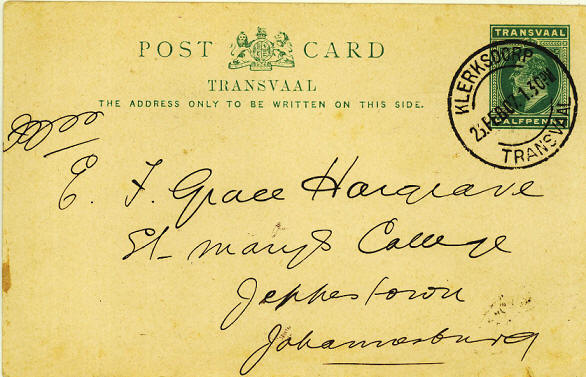 POST CARD
TRANSVAAL
THE ADDRESS ONLY TO BE WRITTEN ON THIS SIDE.
TRANSVAAL
HALFPENNY
KLERKSDORP
FEB 07 1.30PM
TRANSVAAL
E. F. Grace Hargrave
St- Marys College
Jeppestown
Johannesburg